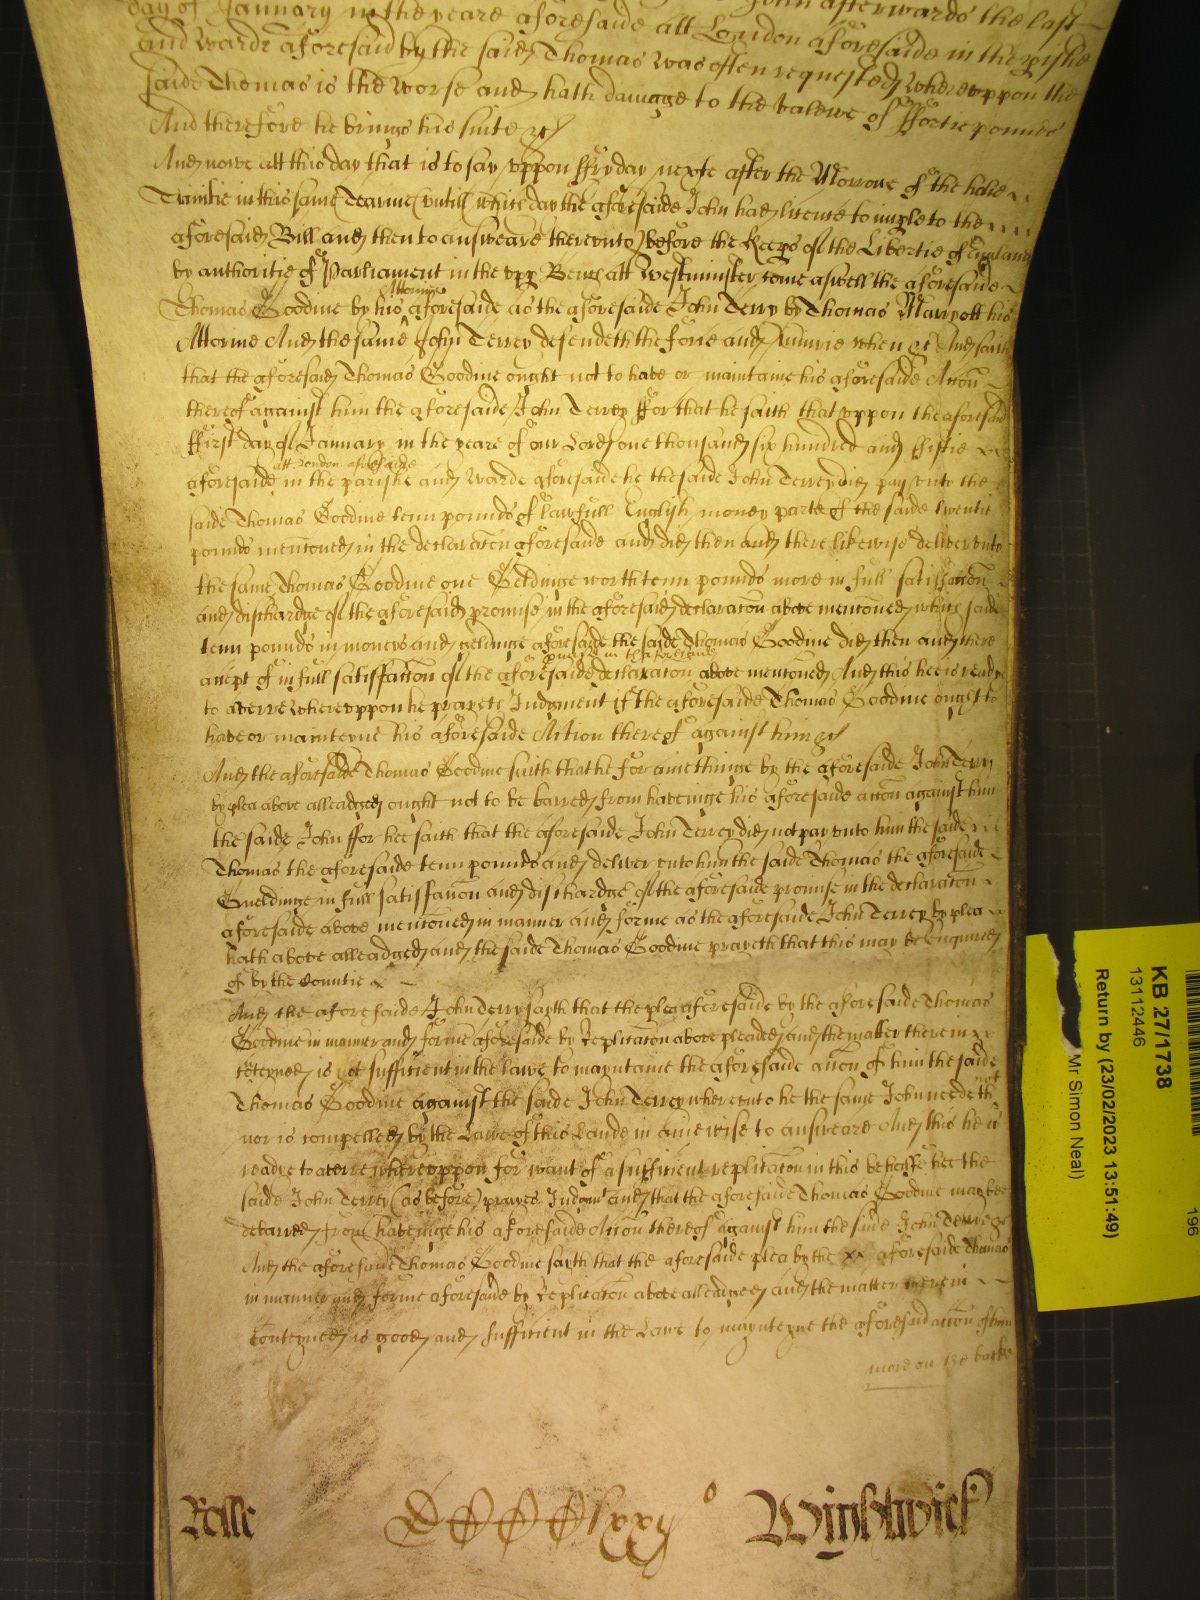 day of January in the yeare aforesaide att London aforesaide in the pishe
and warde aforesaid by the saied Thomas was often requested whereuppon the
saide Thomas is the worse and hath damage to the valewe of ffortie pounds
And therefore he brings his suite &c
And nowe att this day that is to say uppon ffryday nexte after the Morrowe of the holie
Trinitie in this same Tearme (untill which day the aforesaide John had licence to imple to the
aforesaid Bill and then to answeare thereunto) before the Keeps of the Libertie of England
by authoritie of Parliament in the upp Bench att Westminster come aswell the aforesaide
Attornie
Thomas Goodine by his aforesaide as the aforesaide John Terry by Thomas Marryott his
Attornie And the same John Terrey defendeth the force and Iniurie when &c And saith
that the aforesaied Thomas Goodine ought not to have or maintaine his aforesaide Accon
thereof against him the aforesaide John Terrey ffor that he saith that uppon the aforesaid
ffirst day of January in the yeare of our Lord one thousand six hundred and ffiftie
att London aforesaide
aforesaide in the parishe and warde aforesaide he the saide John Terrey did pay unto the
saide Thomas Goodine tenn pounds of lawfull English money parte of the saide twentie
pounds mencioned in the declaracon aforesaide and did then and there likewise deliver unto
the same Thomas Goodine one Geldinge worth tenn pounds more in full satisfaccon
and dischardge of the aforesaid promise in the aforesaied declaracon above mencioned which saide
tenn pounds in moneys and geldinge aforesaide the saide Thomas Goodine did then and there
promise in the aforesaide
accept of in full satisfaccon of the aforesaide declaracon above mencioned And this hee is ready
to averre whereuppon he prayeth Iudgment if the aforesaide Thomas Goodine ought to
have or mainteyne his aforesaide Action thereof against him &c
And the aforesaide Thomas Goodine saith that he for anie thinge by the aforesaide John Terry
by plea above alleadged ought not to be barred from haveinge his aforesaide accon against him
the saide John ffor hee saith that the aforesaide John Terrey did not pay unto him the saide
Thomas the aforesaide tenn pounds and deliver unto him the saide Thomas the aforesaide
Gueldinge in full satisfaccon and dischardge of the aforesaide promise in the declaracon
aforesaide above mencioned in manner and forme as the aforesaide John Terrey by plea
hath above alleadged and the saide Thomas Goodine prayeth that this may be enquired
of by the Countrie &
And the aforesaide John Terry sayth that the plea aforesaide by the aforesaide Thomas
Goodine in manner and forme aforesaide by Replicacon above pleaded and the matter therein
conteyned is not sufficient in the lawe to mayntaine the aforesaide accon of him the saide
not
Thomas Goodine against the saide John Terrey whereunto he the same John needeth
nor is compelled by the Lawe of this Lande in anie wise to answeare And this he is
readye to averre whereuppon for want of a sufficient replicacon in this behalfe hee the
saide John Terrey (as before) prayes Iudgmt and that the aforesaide Thomas Goodine may bee
debarred from haveinge his aforesaide Action thereof against him the saide John Terrey &c
And the aforesaide Thomas Goodine sayth that the aforesaide plea by the aforesaide Thomas
in manner and forme aforesaide by Replicacon above alleadged and the matter therein
Conteyned is good and sufficient in the Lawe to maynteyne the aforesaid accon of him
more on the backe
Rolle Wightwick
KB 27/1738
13112446
Return by (23/02/2023 13:51:49)
Mr Simon Neal)
196